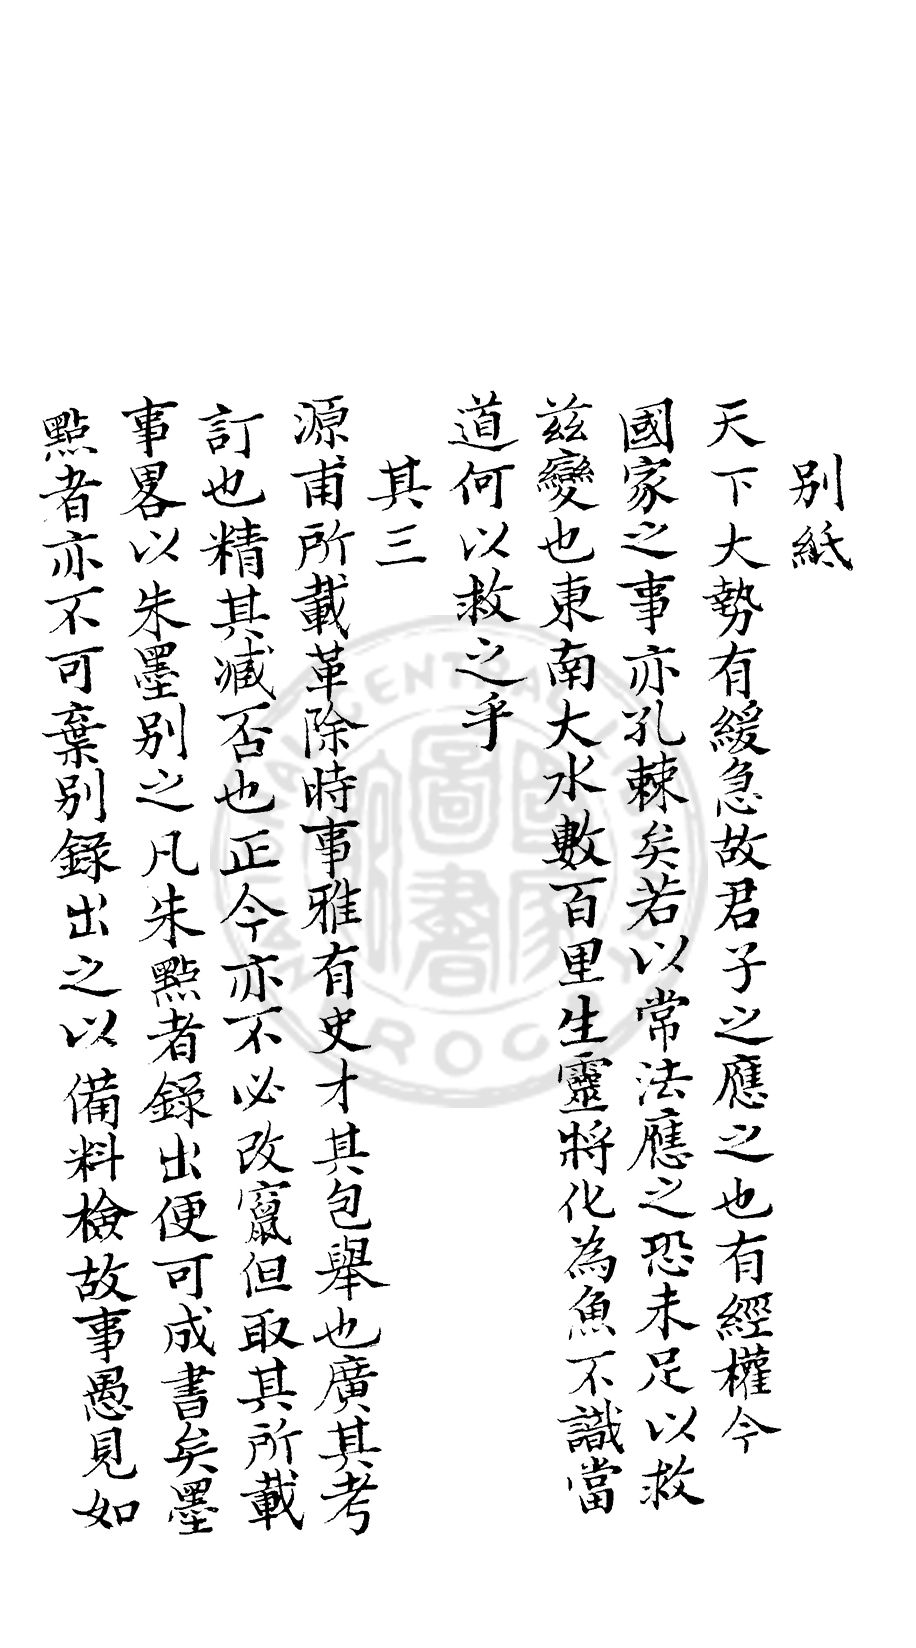 别紙
天下大勢有緩急故君子之應之也有經權今
國家之事亦孔棘矣若以常法應之恐未足以救
茲變也東南大水數百里生靈將化為魚不識當
道何以救之乎
其三
源甫所載革除時事雅有史才其包舉也廣其考
訂也精其臧否也正今亦不必改竄但取其所載
事畧以朱墨别之凡朱點者錄出便可成書矣墨
點者亦不可棄别錄出之以備料檢故事愚見如
圖書 國家
CENTRAL
ROC